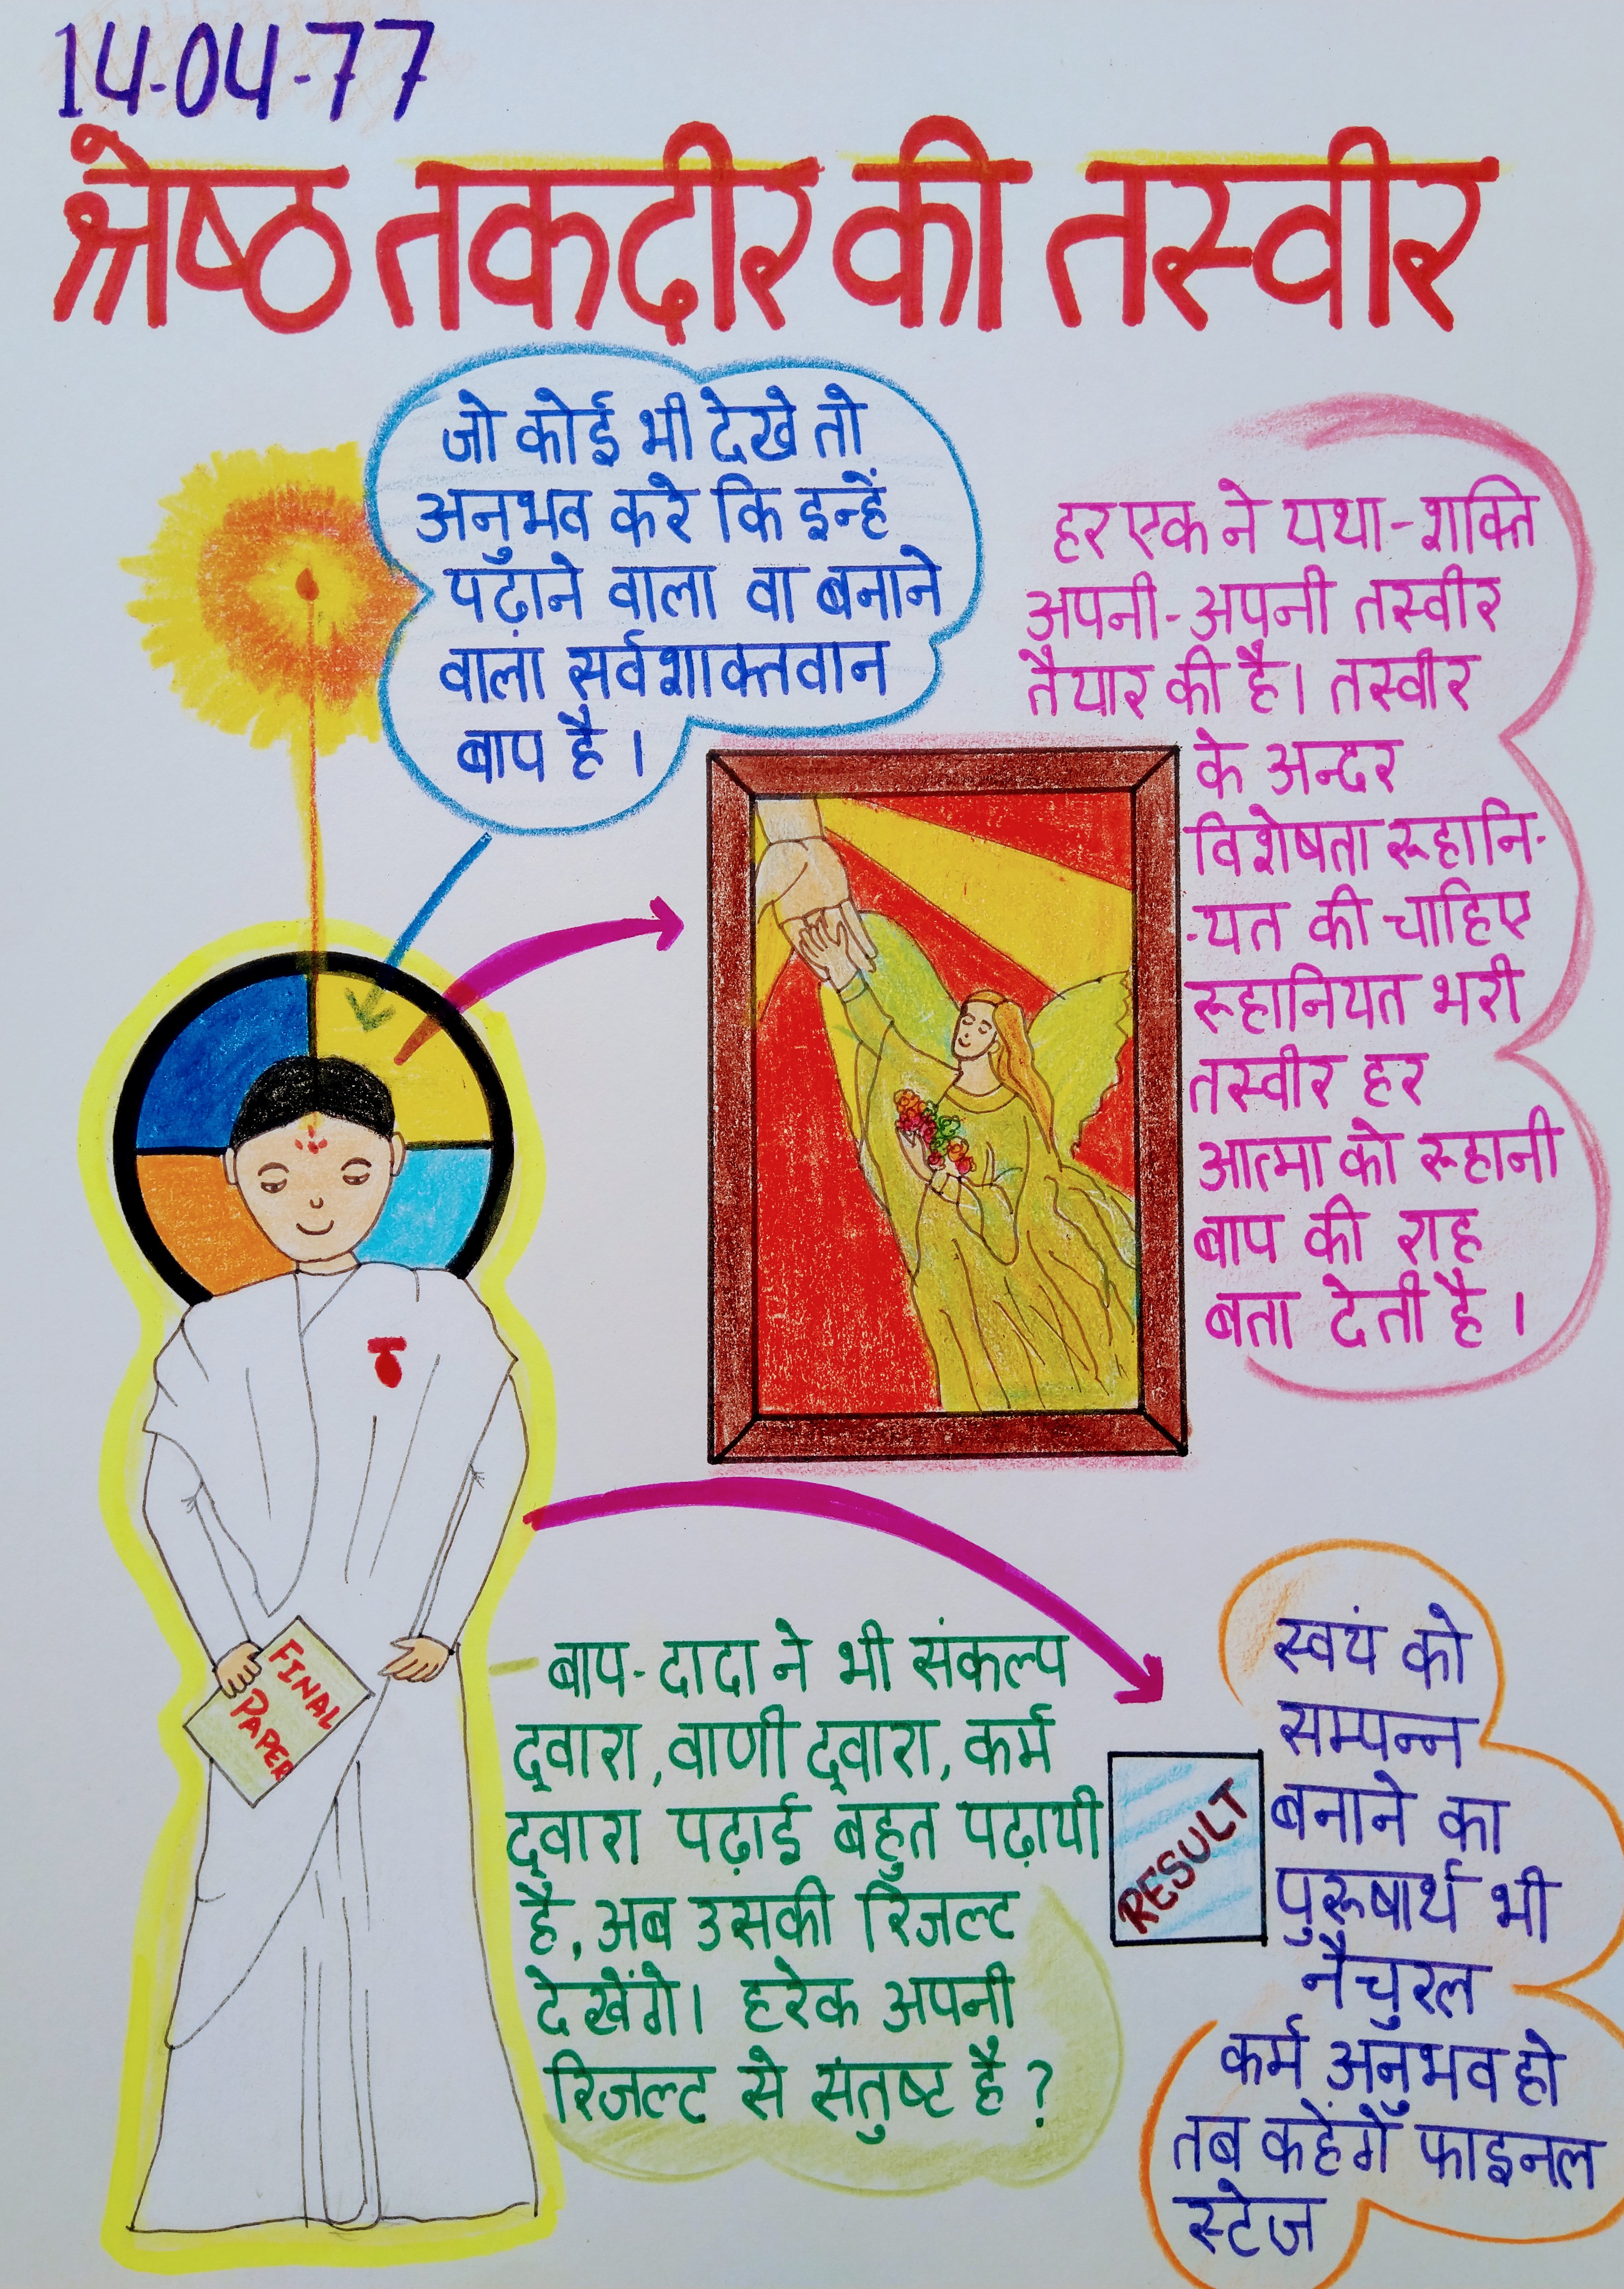 14-04-77
श्रेष्ठ तकदीर की तस्वीर
जो कोई भी देखे तो
अनुभव करे कि इन्हें
पढ़ाने वाला वा बनाने
वाला सर्वशाक्तवान
बाप है।
हर एक ने यथा-शक्ति
अपनी-अपनी तस्वीर
तैयार की है। तस्वीर
के अन्दर
विशेषता रूहानि-
-यत की चाहिए
रूहानियत भरी
तस्वीर हर
आत्मा को रूहानी
बाप की राह
बता देती है।
FINAL
PAPER
बाप-दादा ने भी संकल्प
द्वारा, वाणी द्वारा, कर्म
द्वारा पढ़ाई बहुत पढ़ायी
है, अब उसकी रिजल्ट
देखेंगे। हरेक अपनी
रिजल्ट से संतुष्ट है?
RESULT
स्वयं को
सम्पन्न
बनाने का
पुरूषार्थ भी
नैचुरल
कर्म अनुभव हो
तब कहेंगें फाइनल
स्टेज